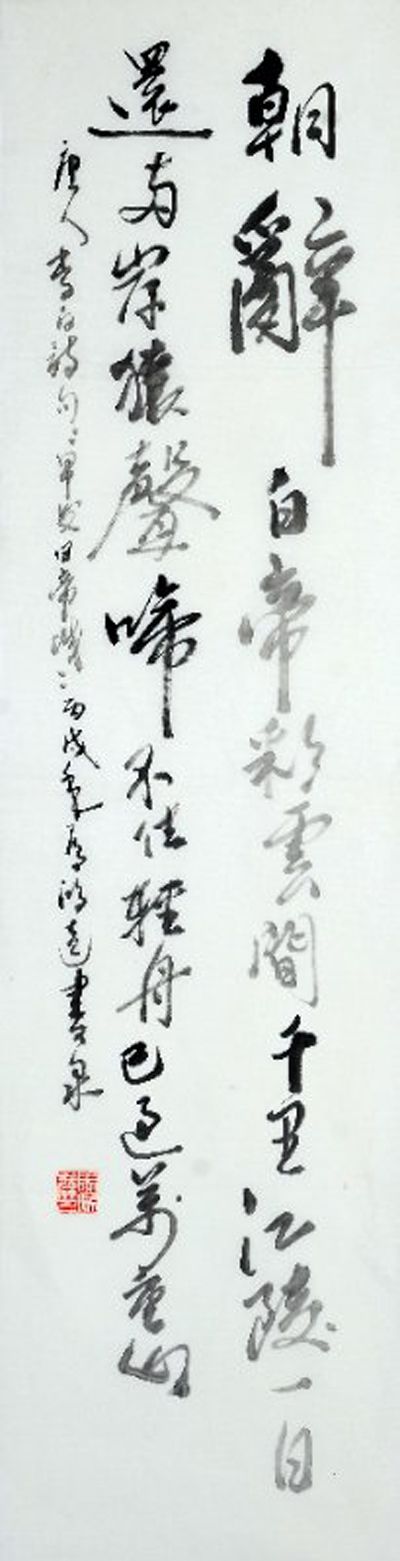 朝辭白帝彩雲間千里江陵一日
還兩岸猿聲啼不住輕舟已過萬重山
唐人李白詩句早發白帝城丙戌年